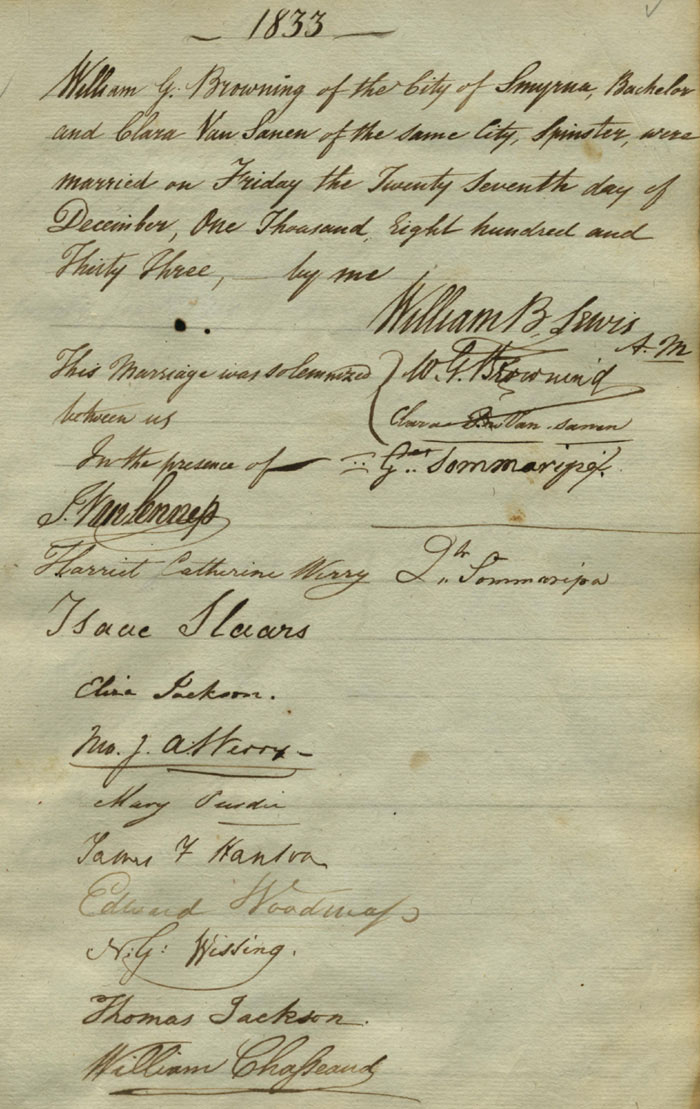 — 1833 —
William G. Browning of the City of Smyrna, Bachelor
and Clara Van Sanen of the same City, Spinster, were
married on Friday the Twenty Seventh day of
December, One Thousand, Eight hundred and
Thirty Three, — by me
William B. Lewis
A.M
This Marriage was solemnized
between us
W. G. Browning
Clara Van-sanen
In the presence of
Sommaripa
J. Van Lennep
Harriet Catherine Werry
Sommaripa
Isaac Slaars
Eliza Jackson.
A. Werry
Mary Purdie
James F Hanson
Edward Woodmaſs
N. G: Wissing.
Thomas Jackson.
William Chaſseaud